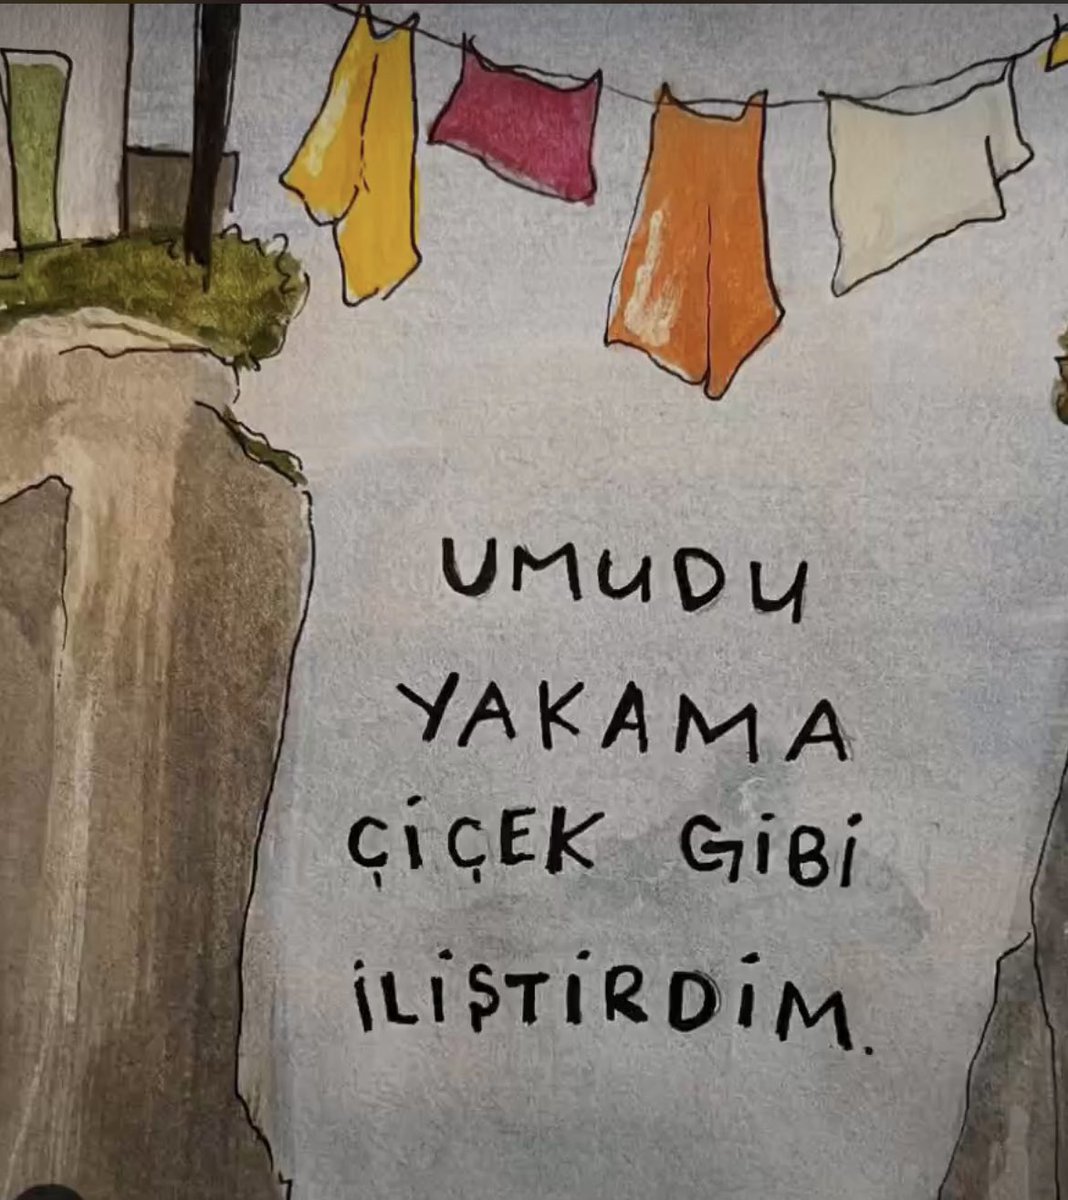 UMUDU
YAKAMA
ÇİÇEK GİBİ
İLİŞTİRDİM.